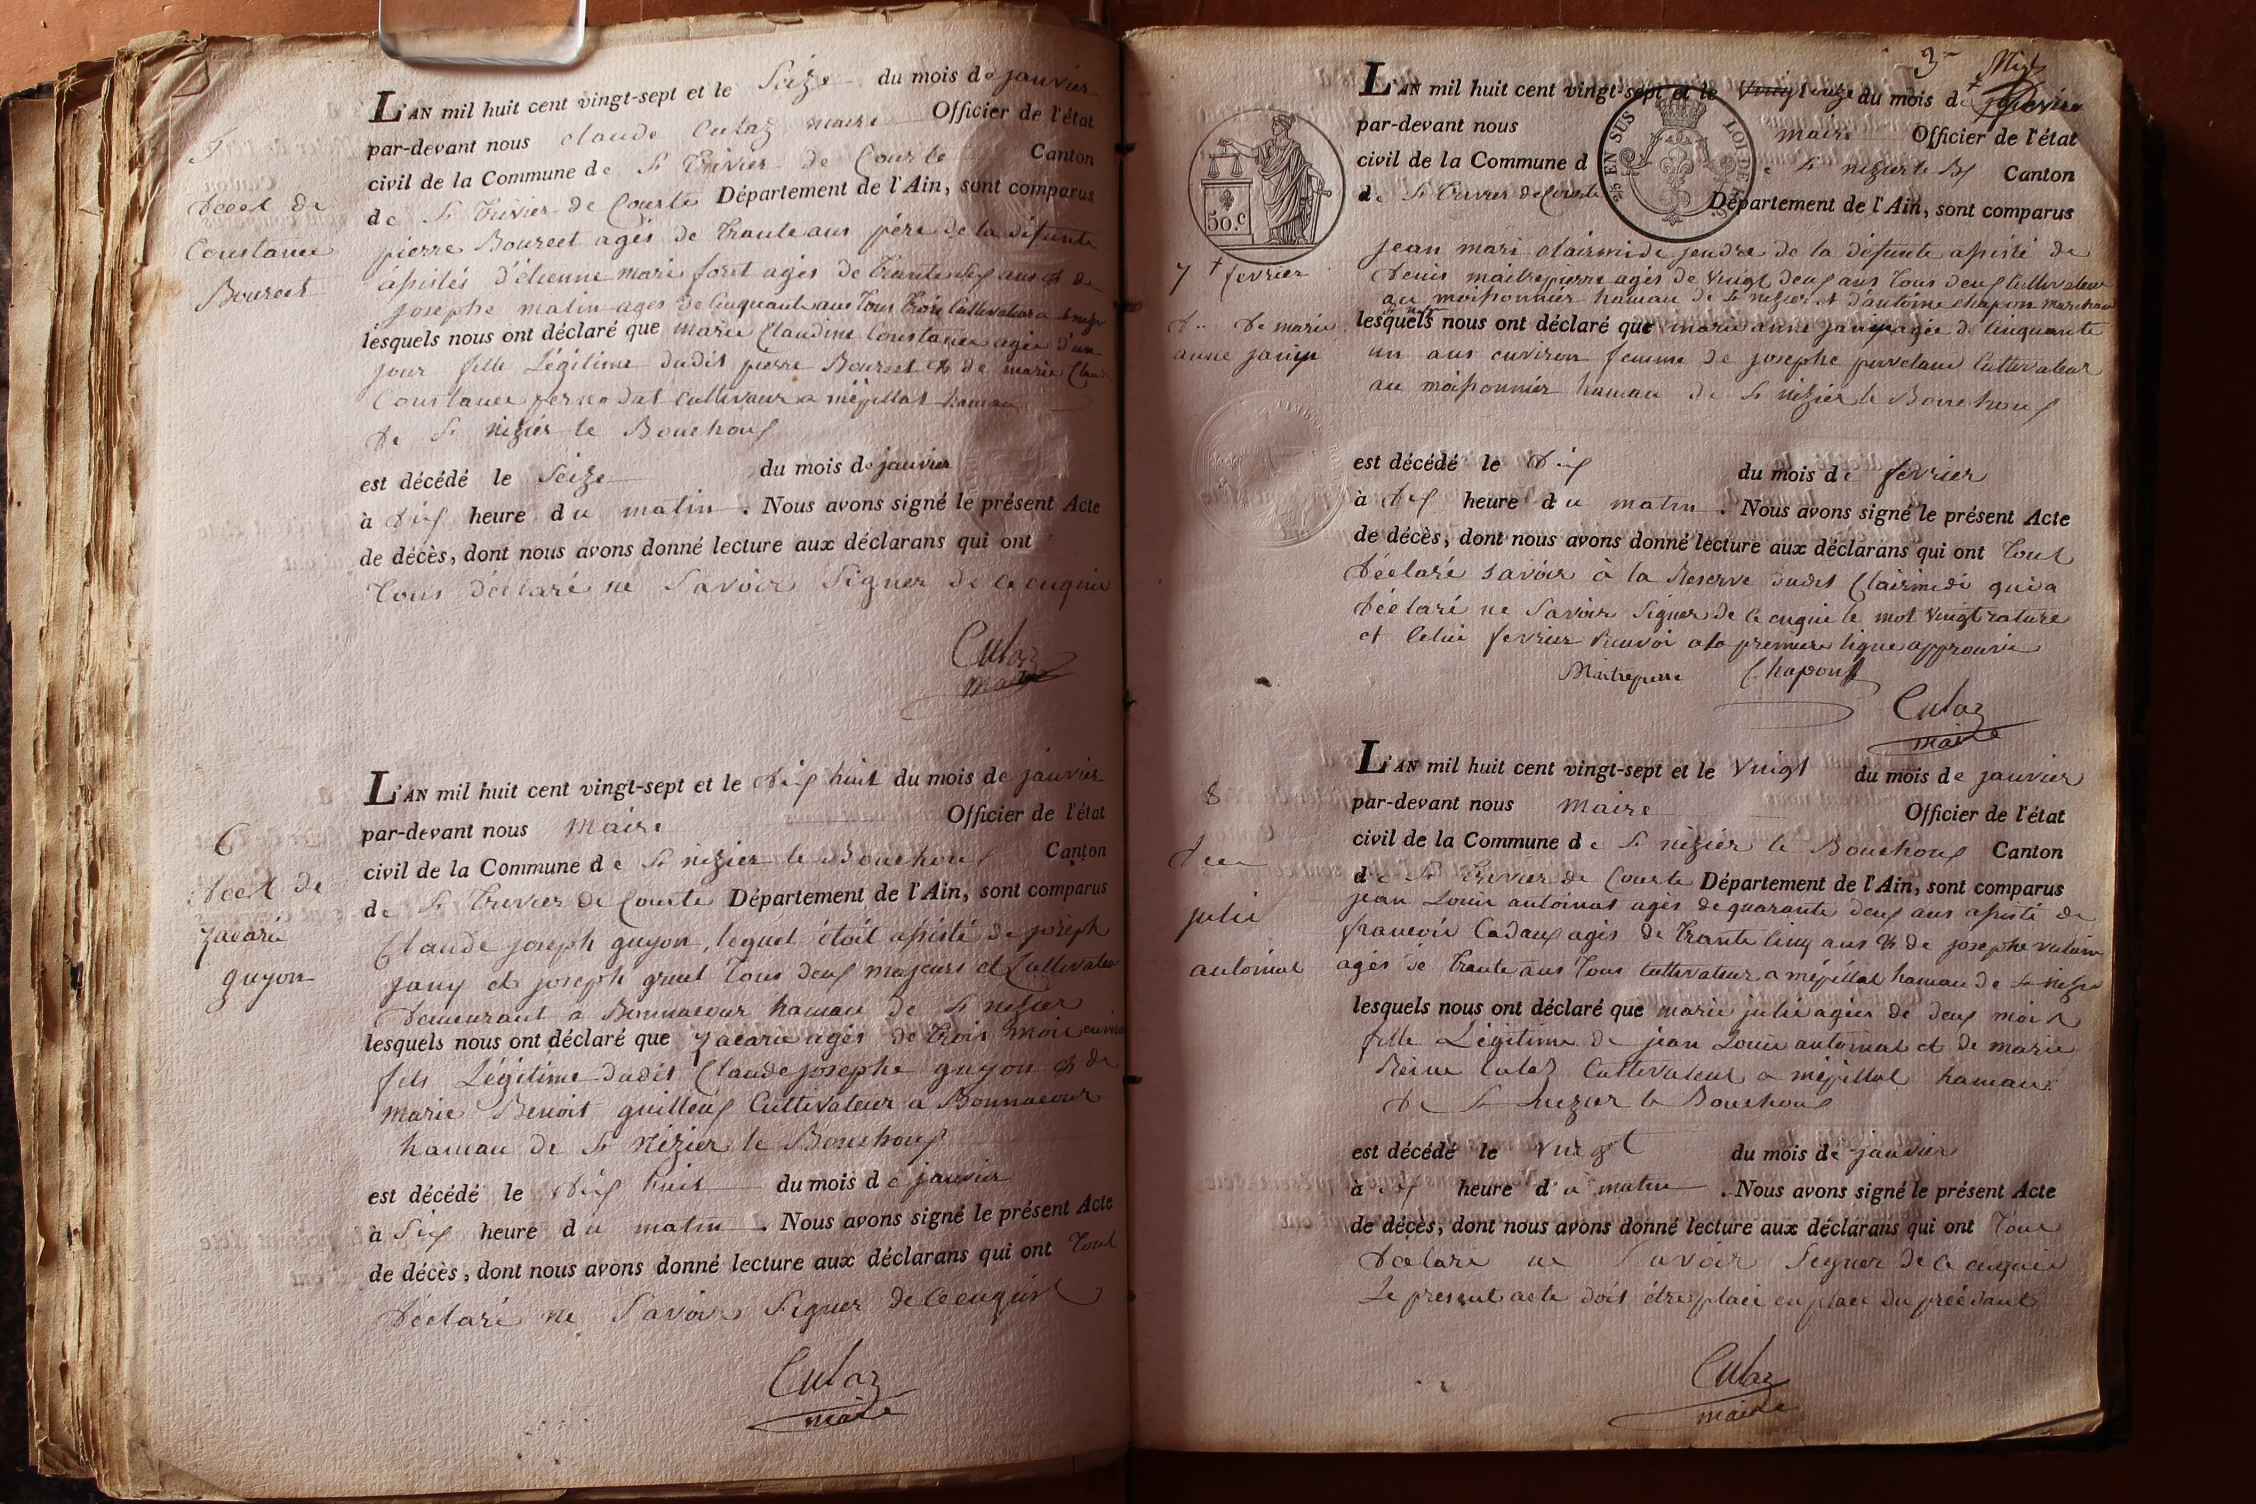 L'AN mil huit cent vingt-sept et le Seize du mois de janvier
par-devant nous claude Culaz maire Officier de l'état
civil de la Commune de St Trivier de Courte Canton
de St Trivier de Courte Département de l'Ain, sont comparus
pierre Bourcet agés de Trante ans père de la défunte
assistés d'étienne marie foret agés de Trante Six ans et de
josephe matin ages de Cinquante ans Tous Trois Cultivateur a
lesquels nous ont déclaré que marie Claudine Constance agée d'un
jour fille Légitime dudit pierre Bourcet et de marie
Constance cultivateur a mépillat hamau
de St nizier le Bouchoux
est décédé le Seize du mois de janvier
à Dix heure du matin. Nous avons signé le présent Acte
de décès, dont nous avons donné lecture aux déclarans qui ont
Tous déclaré ne Savoir Signer de ce enquis
Culaz
maire
5
Decet de
Constance
Bourcet
L'AN mil huit cent vingt-sept et le Dix huit du mois de janvier
par-devant nous Maire Officier de l'état
civil de la Commune de St nizier le Bouchoux Canton
de St Trivier de Courte Département de l'Ain, sont comparus
Claude joseph guyon, lequel étoit assisté de joseph
jany et joseph gruel Tous deux majeurs et Cultivateur
Demeurant a Bonnacour hamau de St nizier
lesquels nous ont déclaré que zacarie agés de Trois mois environ
fils Légitime dudit Claude josephe guyon et de
marie Benoit guilleux Cultivateur a Bonnacour
hamau de St Nézier le Bouchoux
est décédé le Dix huit du mois de janvier
à Six heure du matin. Nous avons signé le présent Acte
de décès, dont nous avons donné lecture aux déclarans qui ont Tout
Déclaré ne Savoir Signer de ce enquis
Culaz
maire
6
Decet de
zacarie
guyon
3
L'AN mil huit cent vingt-sept et le Vingt onze du mois de janvier
par-devant nous maire Officier de l'état
civil de la Commune de St nizier le Bx Canton
de St Trivier de Courte Département de l'Ain, sont comparus
EN SUS
LOI DE
50.c
jean mari clairmidé jendre de la défunte assisté de
Denis maitrepierre agés de Vingt deux ans Tous deux Cultivateur
au moissonnier hamau de St nizier et d'antoine chapon marchand
lesquels nous ont déclaré que marie anne janin agée de Cinquante
un ans environ femme de josephe Cultivateur
au moissonnier hamau de St nizier le Bouchoux
est décédé le Dix du mois de fevrier
à Dix heure du matin. Nous avons signé le présent Acte
de décès, dont nous avons donné lecture aux déclarans qui ont Tout
Déclaré savoir à la Reserve dudit Clairmidé qui a
Déclaré ne Savoir Signer de ce enquis le mot Vingt rature
et Celui fevrier Renvoi a la premiere ligne approuvé
Maitrepierre Chapon
Culaz
maire
7 + fevrier
De marie
anne janin
L'AN mil huit cent vingt-sept et le Vingt du mois de janvier
par-devant nous Maire Officier de l'état
civil de la Commune de St nizier le Bouchoux Canton
de St Trivier de Courte Département de l'Ain, sont comparus
jean Louis antoinat agés de quarante deux ans assisté de
francois Cadaux agés de Trante Cinq ans et de josephe
agés de Trante ans Tous Cultivateur a mépillat hamau de St nizier
lesquels nous ont déclaré que marie julie agée de deux mois
fille Légitime de jean Louis antoinat et de marie
Reine Culaz Cultivateur a mépillat hamau
de St nizier le Bouchoux
est décédé le Vingt du mois de janvier
à dix heure du matin. Nous avons signé le présent Acte
de décès, dont nous avons donné lecture aux déclarans qui ont Tous
Déclaré ne Savoir Signer de ce enquis
Le present acte doit être placé en place du précédant
Culaz
maire
8
Decet
julie
antoinat